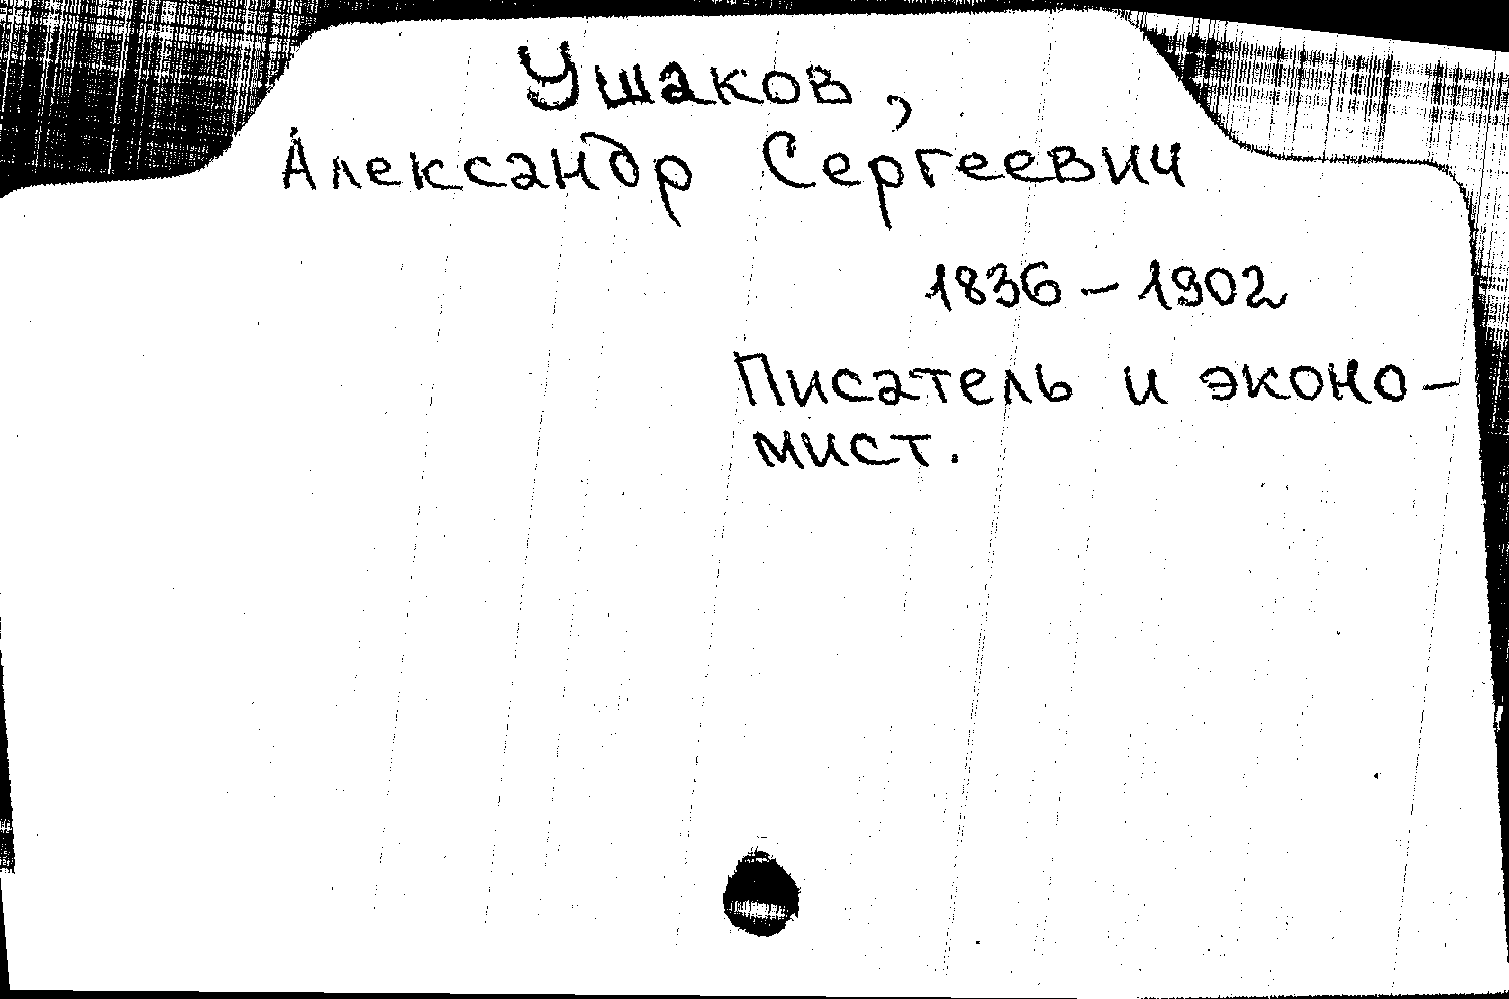 Ушаков,
Александр Сергеевич
1836 – 1902
Писатель и эконо-
мист.